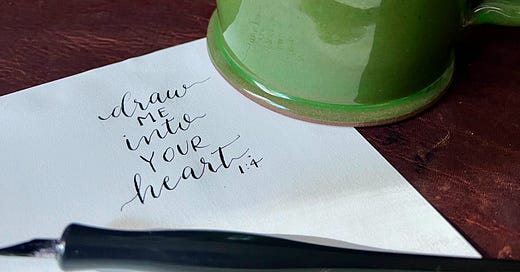 draw
ME
into
YOUR
heart
1:4